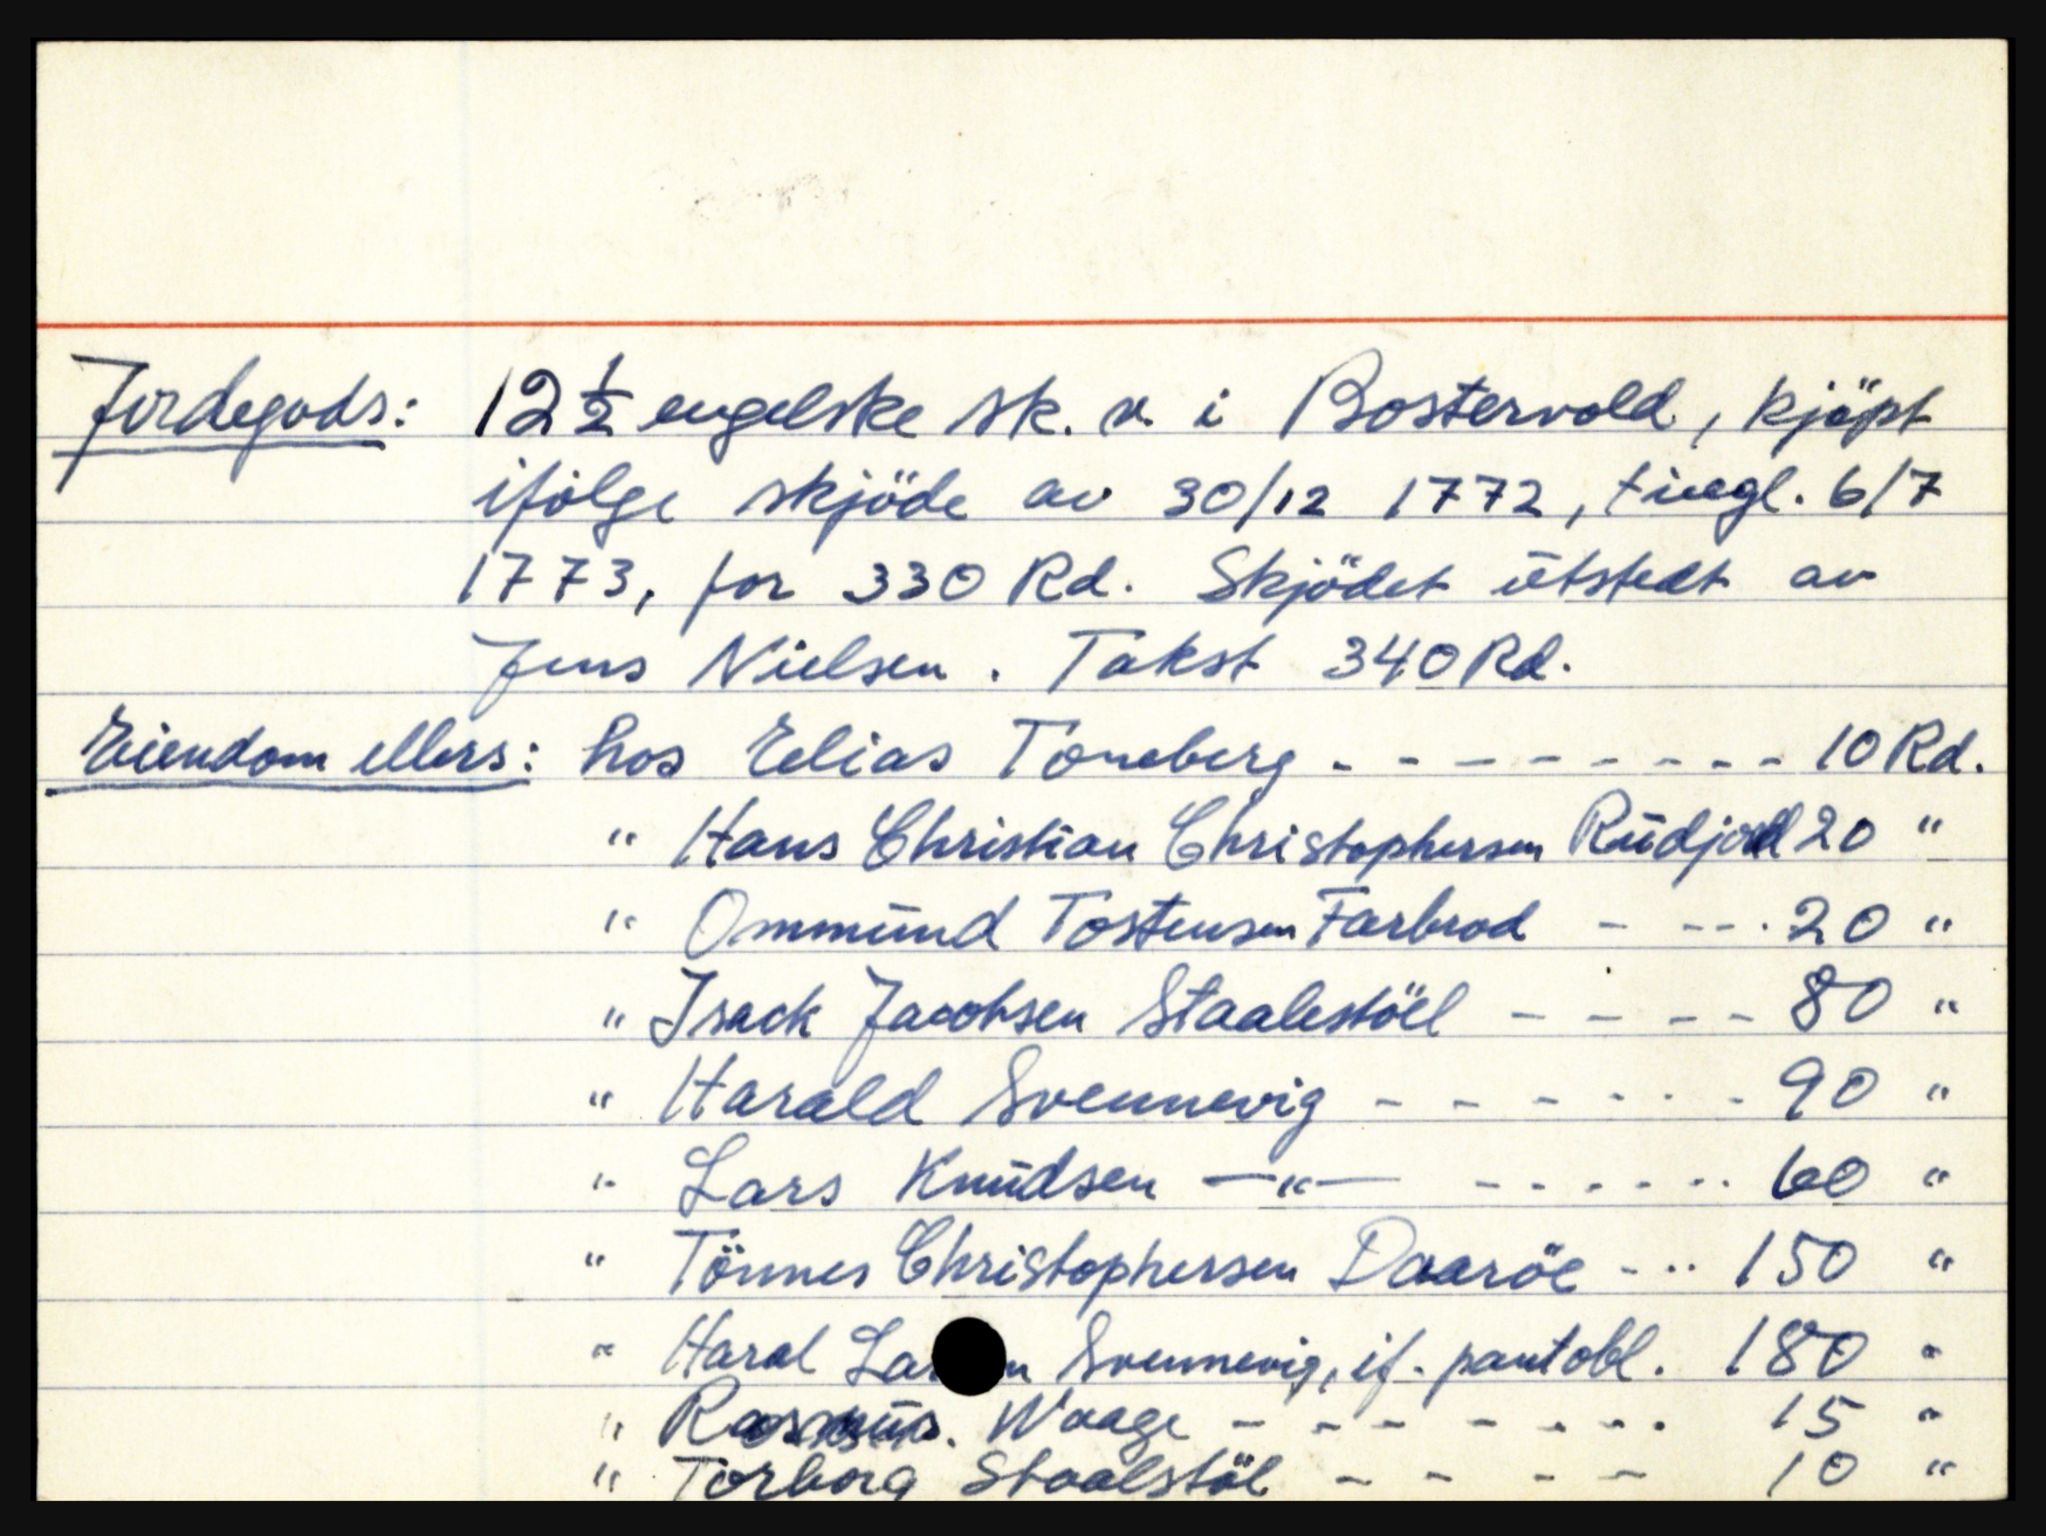 Jordegods: 12 1/2 engelske sk. v. i Bostervold, kjöpt
ifölge skjöde av 30/12 1772, tingl. 6/7
1773, for 330 Rd. Skjödet utstedt av
Jens Nielsen. Takst 340 Rd.
Eiendom ellers: hos Elias Toneberg - - - - - - - - - 10 Rd.
" Hans Christian Christophersen Rudjord 20 "
" Ommund Tostensen Farbrod - - - - 20 "
" Isack Jacobsen Staalestöel - - - - 80 "
" Harald Svennevig - - - - - - - - 90 "
" Lars Knudsen —"— - - - - - - 60 "
" Tönnes Christophersen Daaröe - - - 150 "
" Haral La n Svennevig, if. pantobl. 180 "
" Rasmus. Waage - - - - - - - 15 "
" Torborg Staalstöl - - - - 10 "